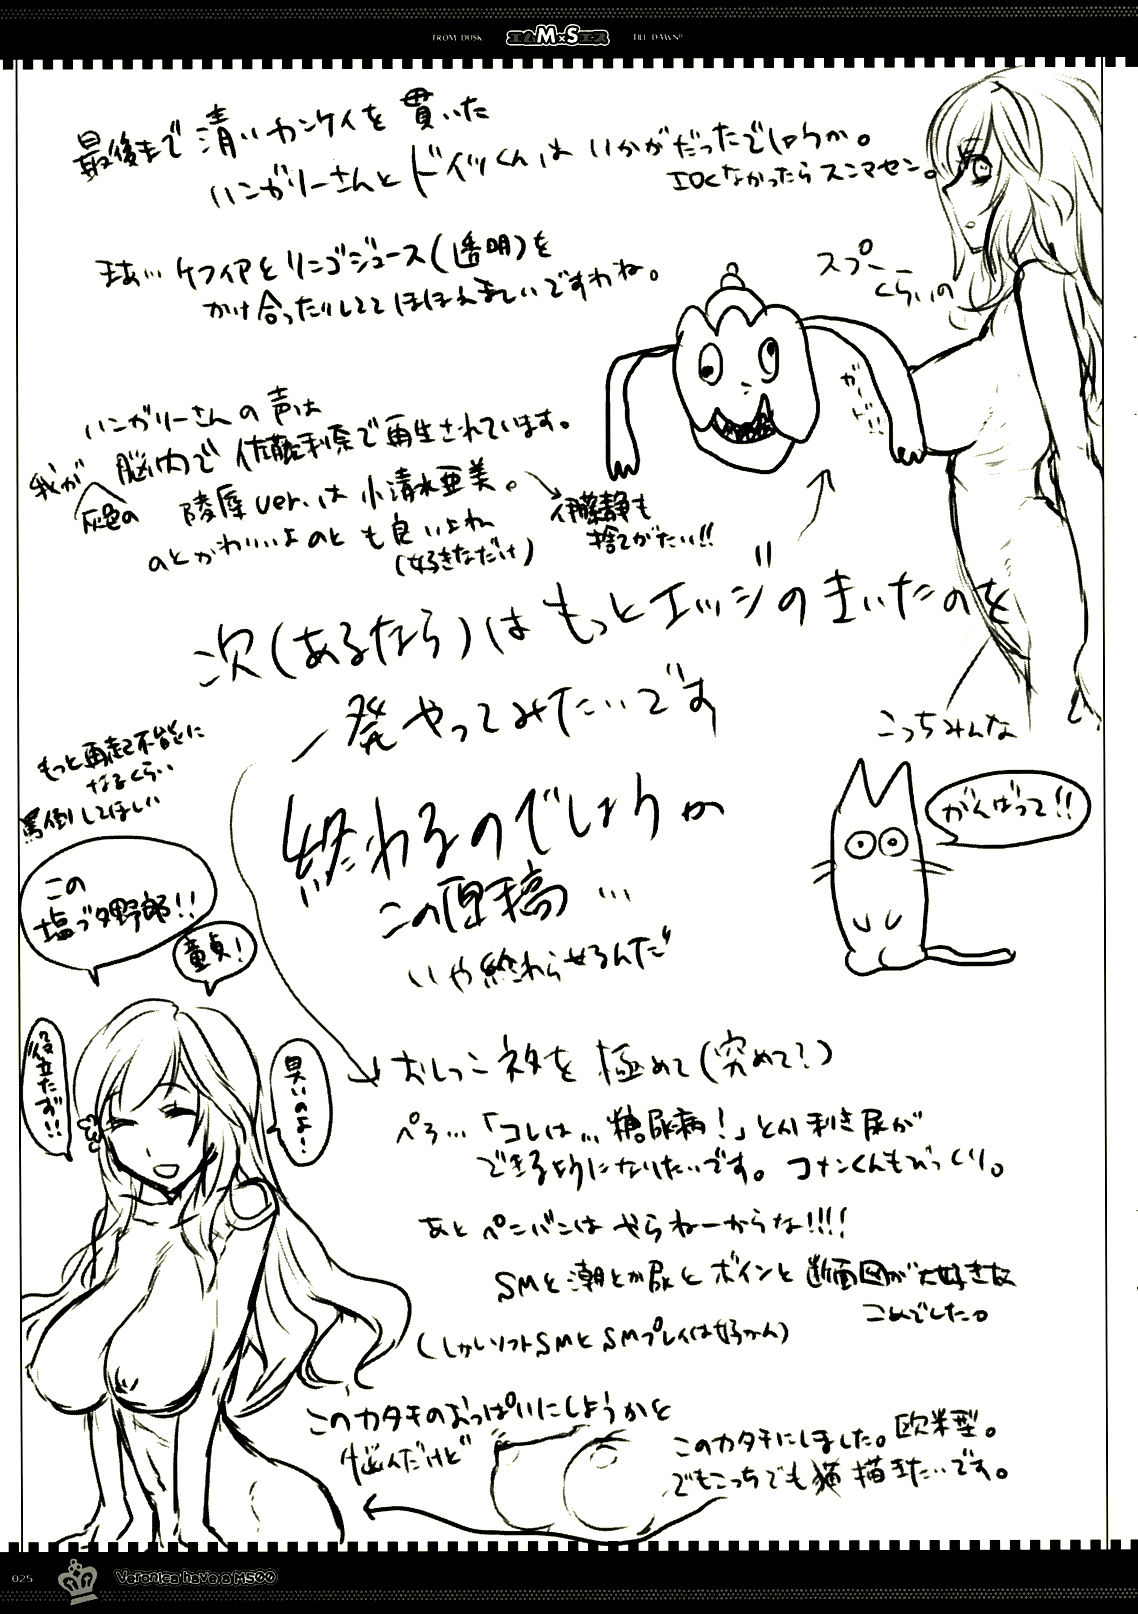 FROM DUSK
エムM×Sエス
TILL DAWN!!
最後まで清いカンケイを貫いた
ハンガリーさんとドイツくんはいかがだったでしょうか。
エロくなかったらスンマセン。
まあ…ケフィアとリンゴジュース(透明)を
かけ合ったりしててほほえましいですわね。
スプー
くらいの
ガイドー!!
ハンガリーさんの声は
我が
灰色の
脳内で佐藤利奈で再生されています。
陵辱ver.は小清水亜美。
伊藤静も
捨てがたい!!
のとかわいいよのとも良いよね
(好きなだけ)
次(あるなら)はもっとエッジのきいたのを
一発やってみたいです
こっちみんな
がんばって!!
もっと再起不能に
なるくらい
罵倒してほしい
終わるのでしょうか
この原稿…
いや終わらせるんだ
この
塩ブタ野郎!!
童貞!
役立たず!!
臭いのよ!
おしっこネタを極めて(究めて?)
ペろ…「コレは…糖尿病!」とか利き尿が
できるようになりたいです。コナンくんもびっくり。
あとペニバンはやらねーからな!!!!
SMと潮とか尿とボインと断面図が大好きな
こめでした。
(しかしソフトSMとSMプレイは好かん)
このカタチのおっぱいにしようかと
悩んだけど
このカタチにしました。欧米型。
でもこっちでも猫描きたいです。
025
Veronica have a M500